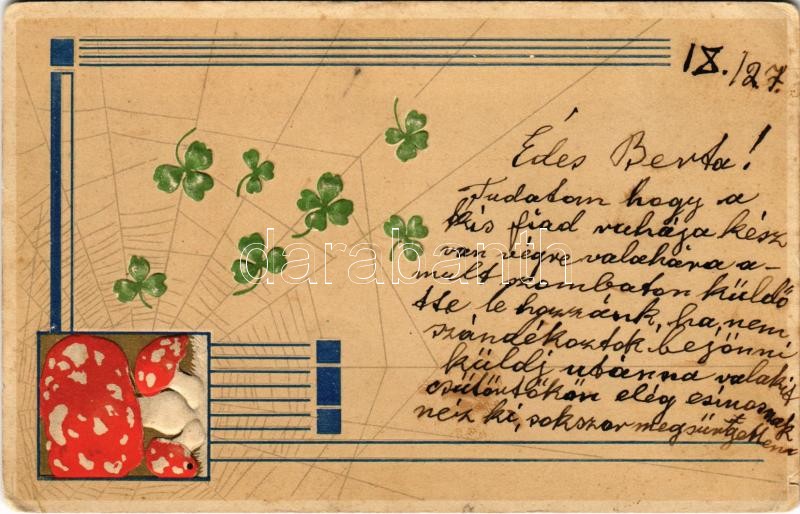 18./27.
Édes Berta!
Tudatom hogy a
kis fiad ruhája kész
van végre valahára a-
mult szombaton küldö
tte le hozzánk, ha nem
szándékoztok bejönni
küldj utánna valakit
csütörtökön elég csinosnak
néz ki, sokszor megsürgettem
darabanth